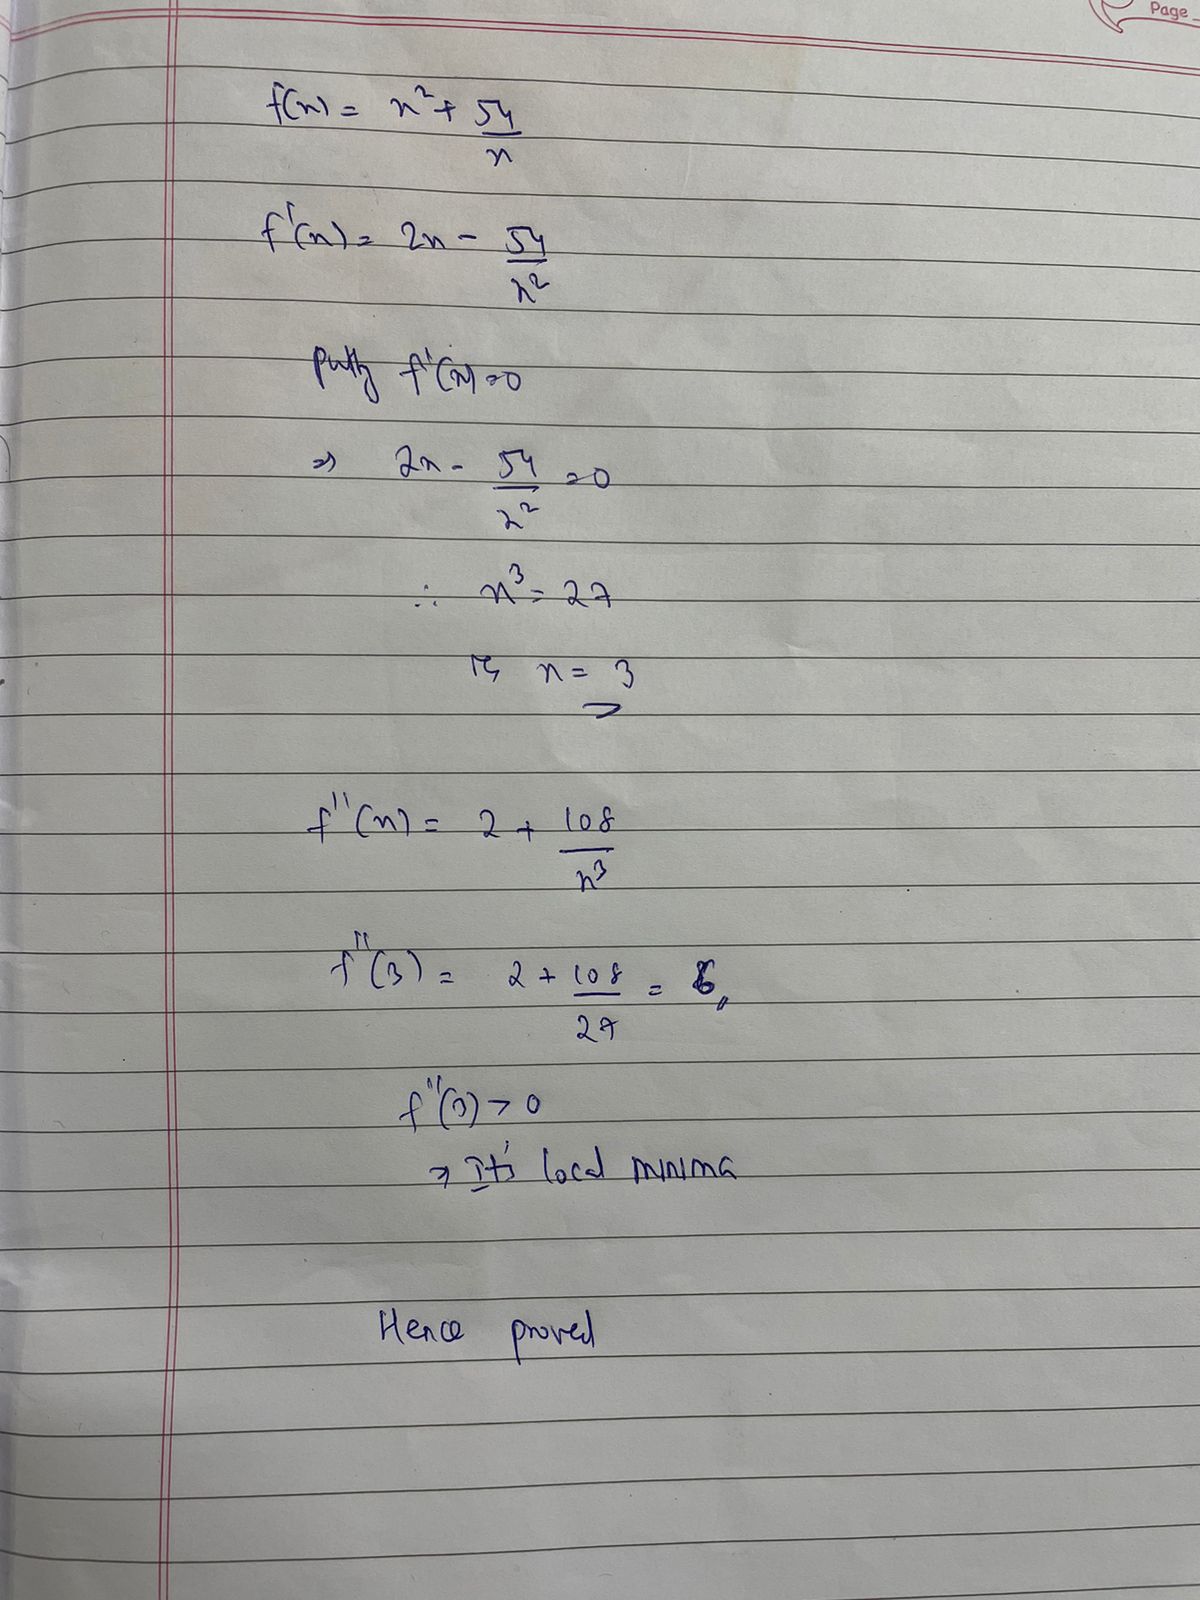 Page
f(x) = x² + 54/x
f'(x) = 2x - 54/x²
f'(x) = 0
⇒ 2x - 54/x² = 0
∴ x³ = 27
x = 3
f''(x) = 2 + 108/x³
f''(3) = 2 + 108/27 = 6
f''(3) > 0
⇒ It's local minima
Hence proved